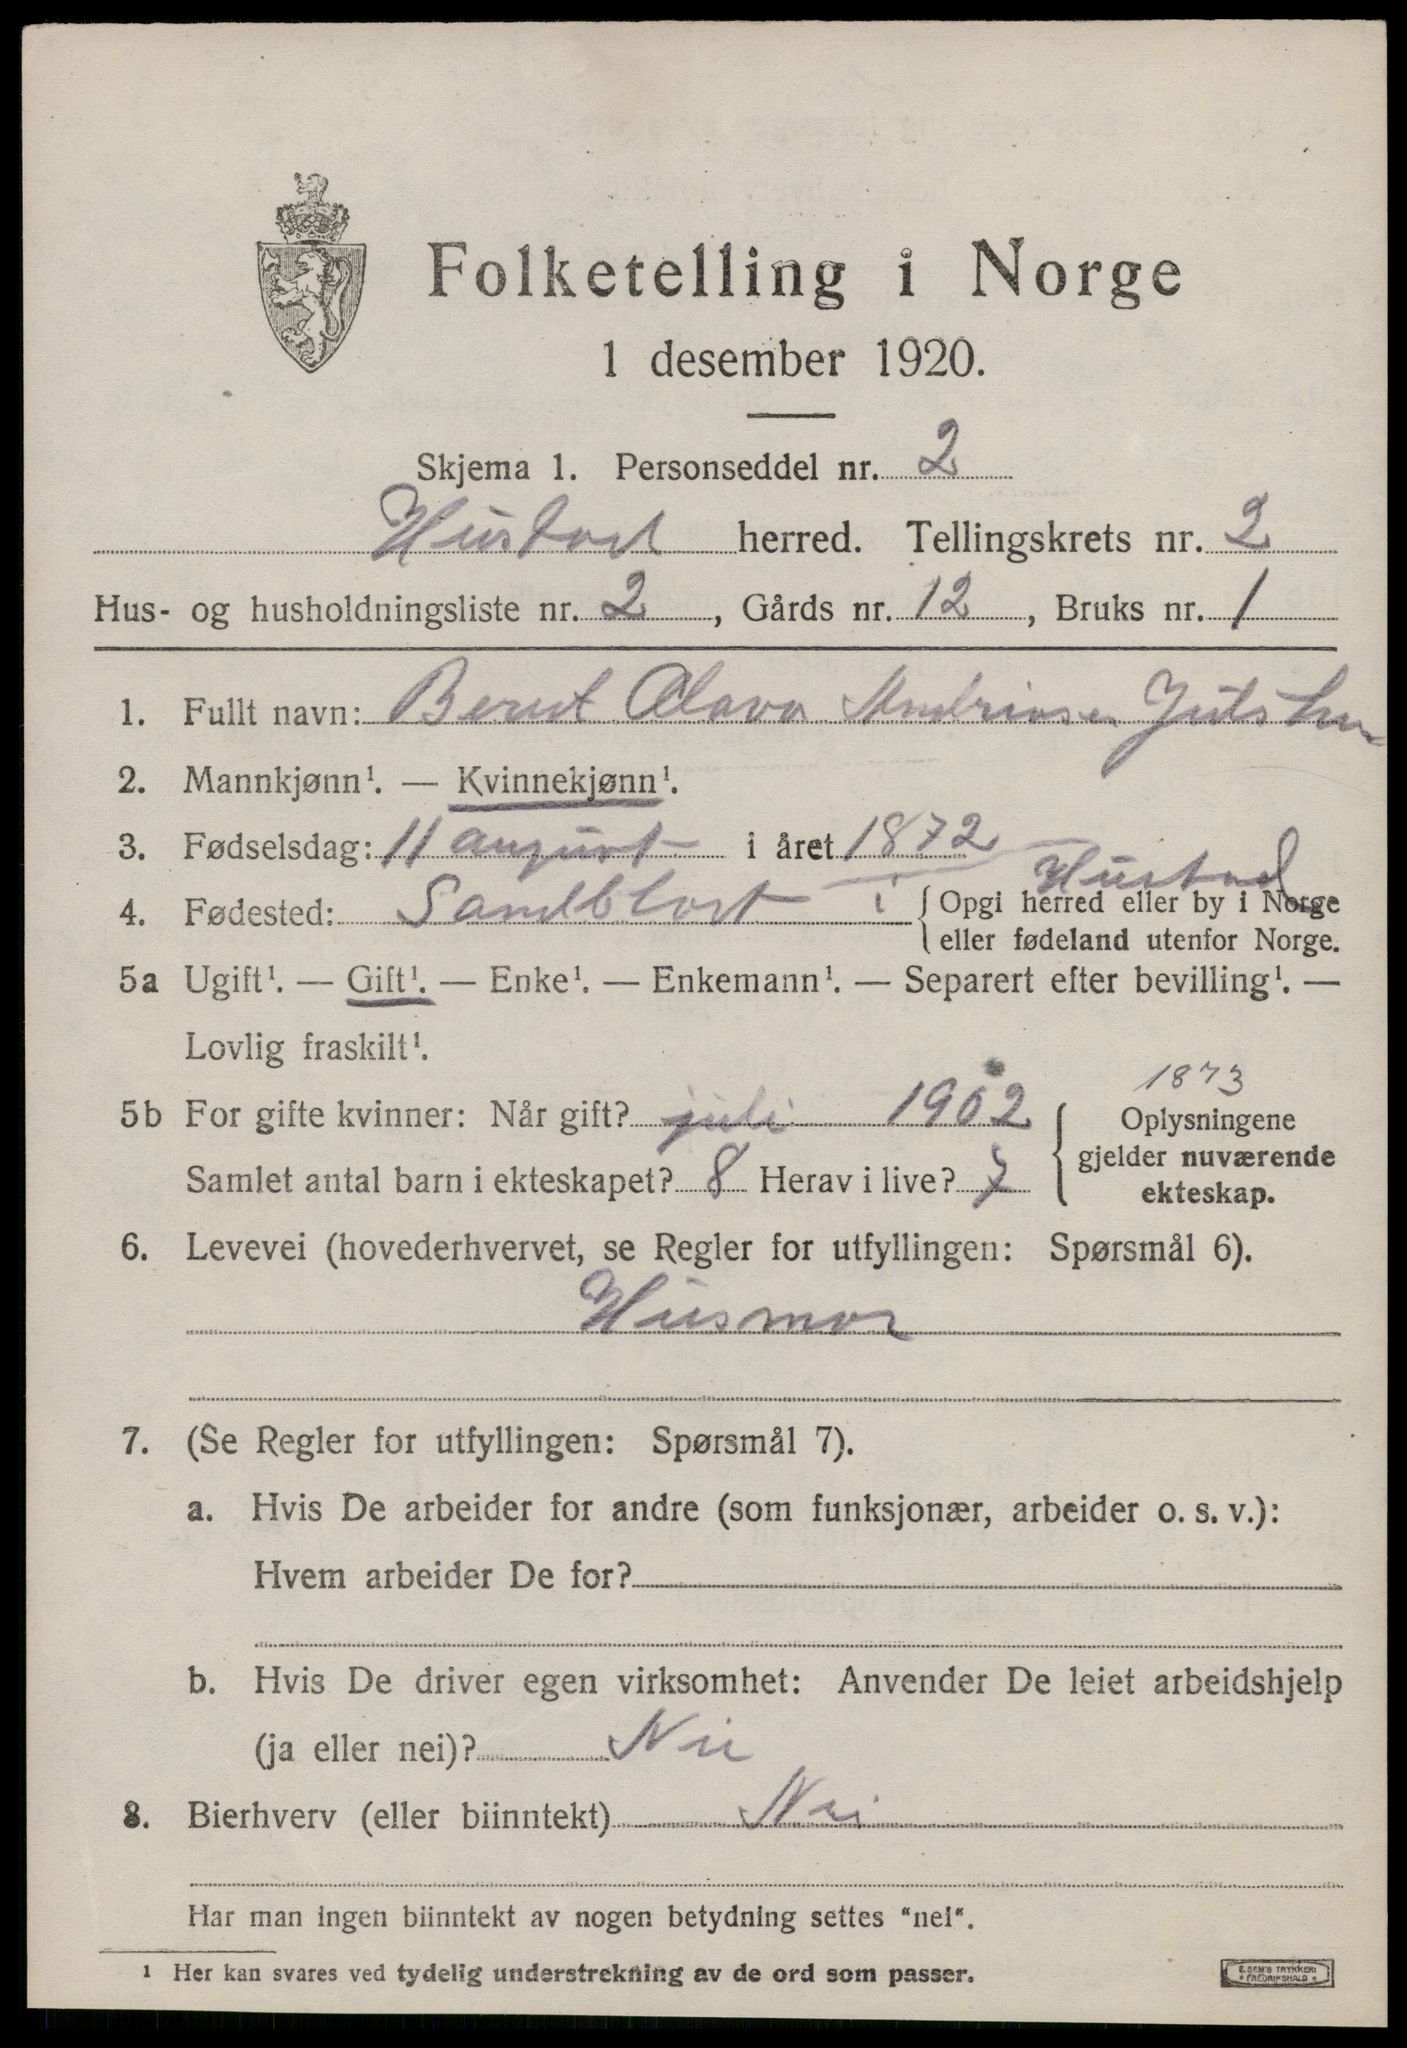 Folketelling i Norge
1 desember 1920.
Skjema 1. Personseddel nr. 2
Hustad herred. Tellingskrets nr. 2
Hus- og husholdningsliste nr. 2, Gårds nr. 12, Bruks nr. 1
1. Fullt navn: Berut Olava
2. Mannkjønn¹. — Kvinnekjønn¹.
3. Fødselsdag: 11 august i året 1872
4. Fødested: Sandblost i Hustad { Opgi herred eller by i Norge
{ eller fødeland utenfor Norge.
5a Ugift¹. — Gift¹. — Enke¹. — Enkemann¹. — Separert efter bevilling¹. —
Lovlig fraskilt¹.
1873
5b For gifte kvinner: Når gift? juli 1902 { Oplysningene
gjelder nuværende
Samlet antal barn i ekteskapet? 8 Herav i live? 7
ekteskap.
6. Levevei (hovederhvervet, se Regler for utfyllingen: Spørsmål 6).
Husmor
7. (Se Regler for utfyllingen: Spørsmål 7).
a. Hvis De arbeider for andre (som funksjonær, arbeider o. s. v.):
Hvem arbeider De for?
b. Hvis De driver egen virksomhet: Anvender De leiet arbeidshjelp
(ja eller nei)? Nei
8. Bierhverv (eller biinntekt) Nei
Har man ingen biinntekt av nogen betydning settes "nei".
¹ Her kan svares ved tydelig understrekning av de ord som passer.
E. SEM'S TRYKKERI
FREDRIKSHALD